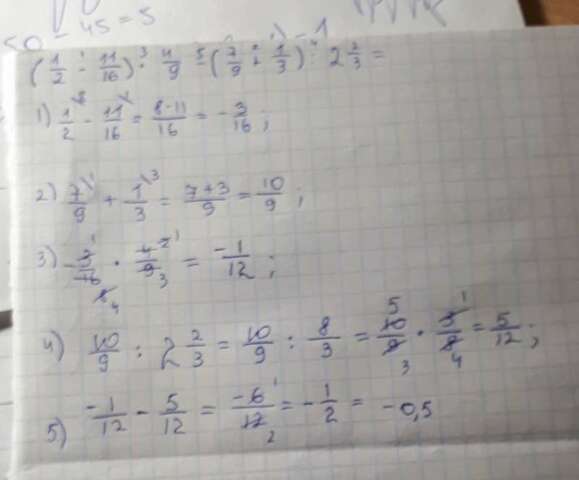 50 - 45 = 5
(1/2 - 11/16) · 4/9 - (7/9 + 1/3) : 2 2/3 =
1) 1/2 - 11/16 = 8-11/16 = -3/16;
2) 7/9 + 1/3 = 7+3/9 = 10/9;
3) -3/16 · 4/9 = -1/12;
4) 10/9 : 2 2/3 = 10/9 : 8/3 = 10/9 · 3/8 = 5/12;
5) -1/12 - 5/12 = -6/12 = -1/2 = -0,5